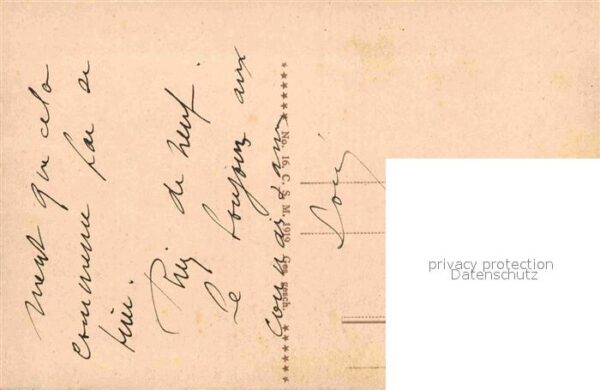 ment que cela
commence par se
Rien de neuf.
Le toujours aux
Louis
★★★★★★★ No. 16, C. S. M. 1919 Ges. gesch. ★★★★★★★
privacy protection
Datenschutz